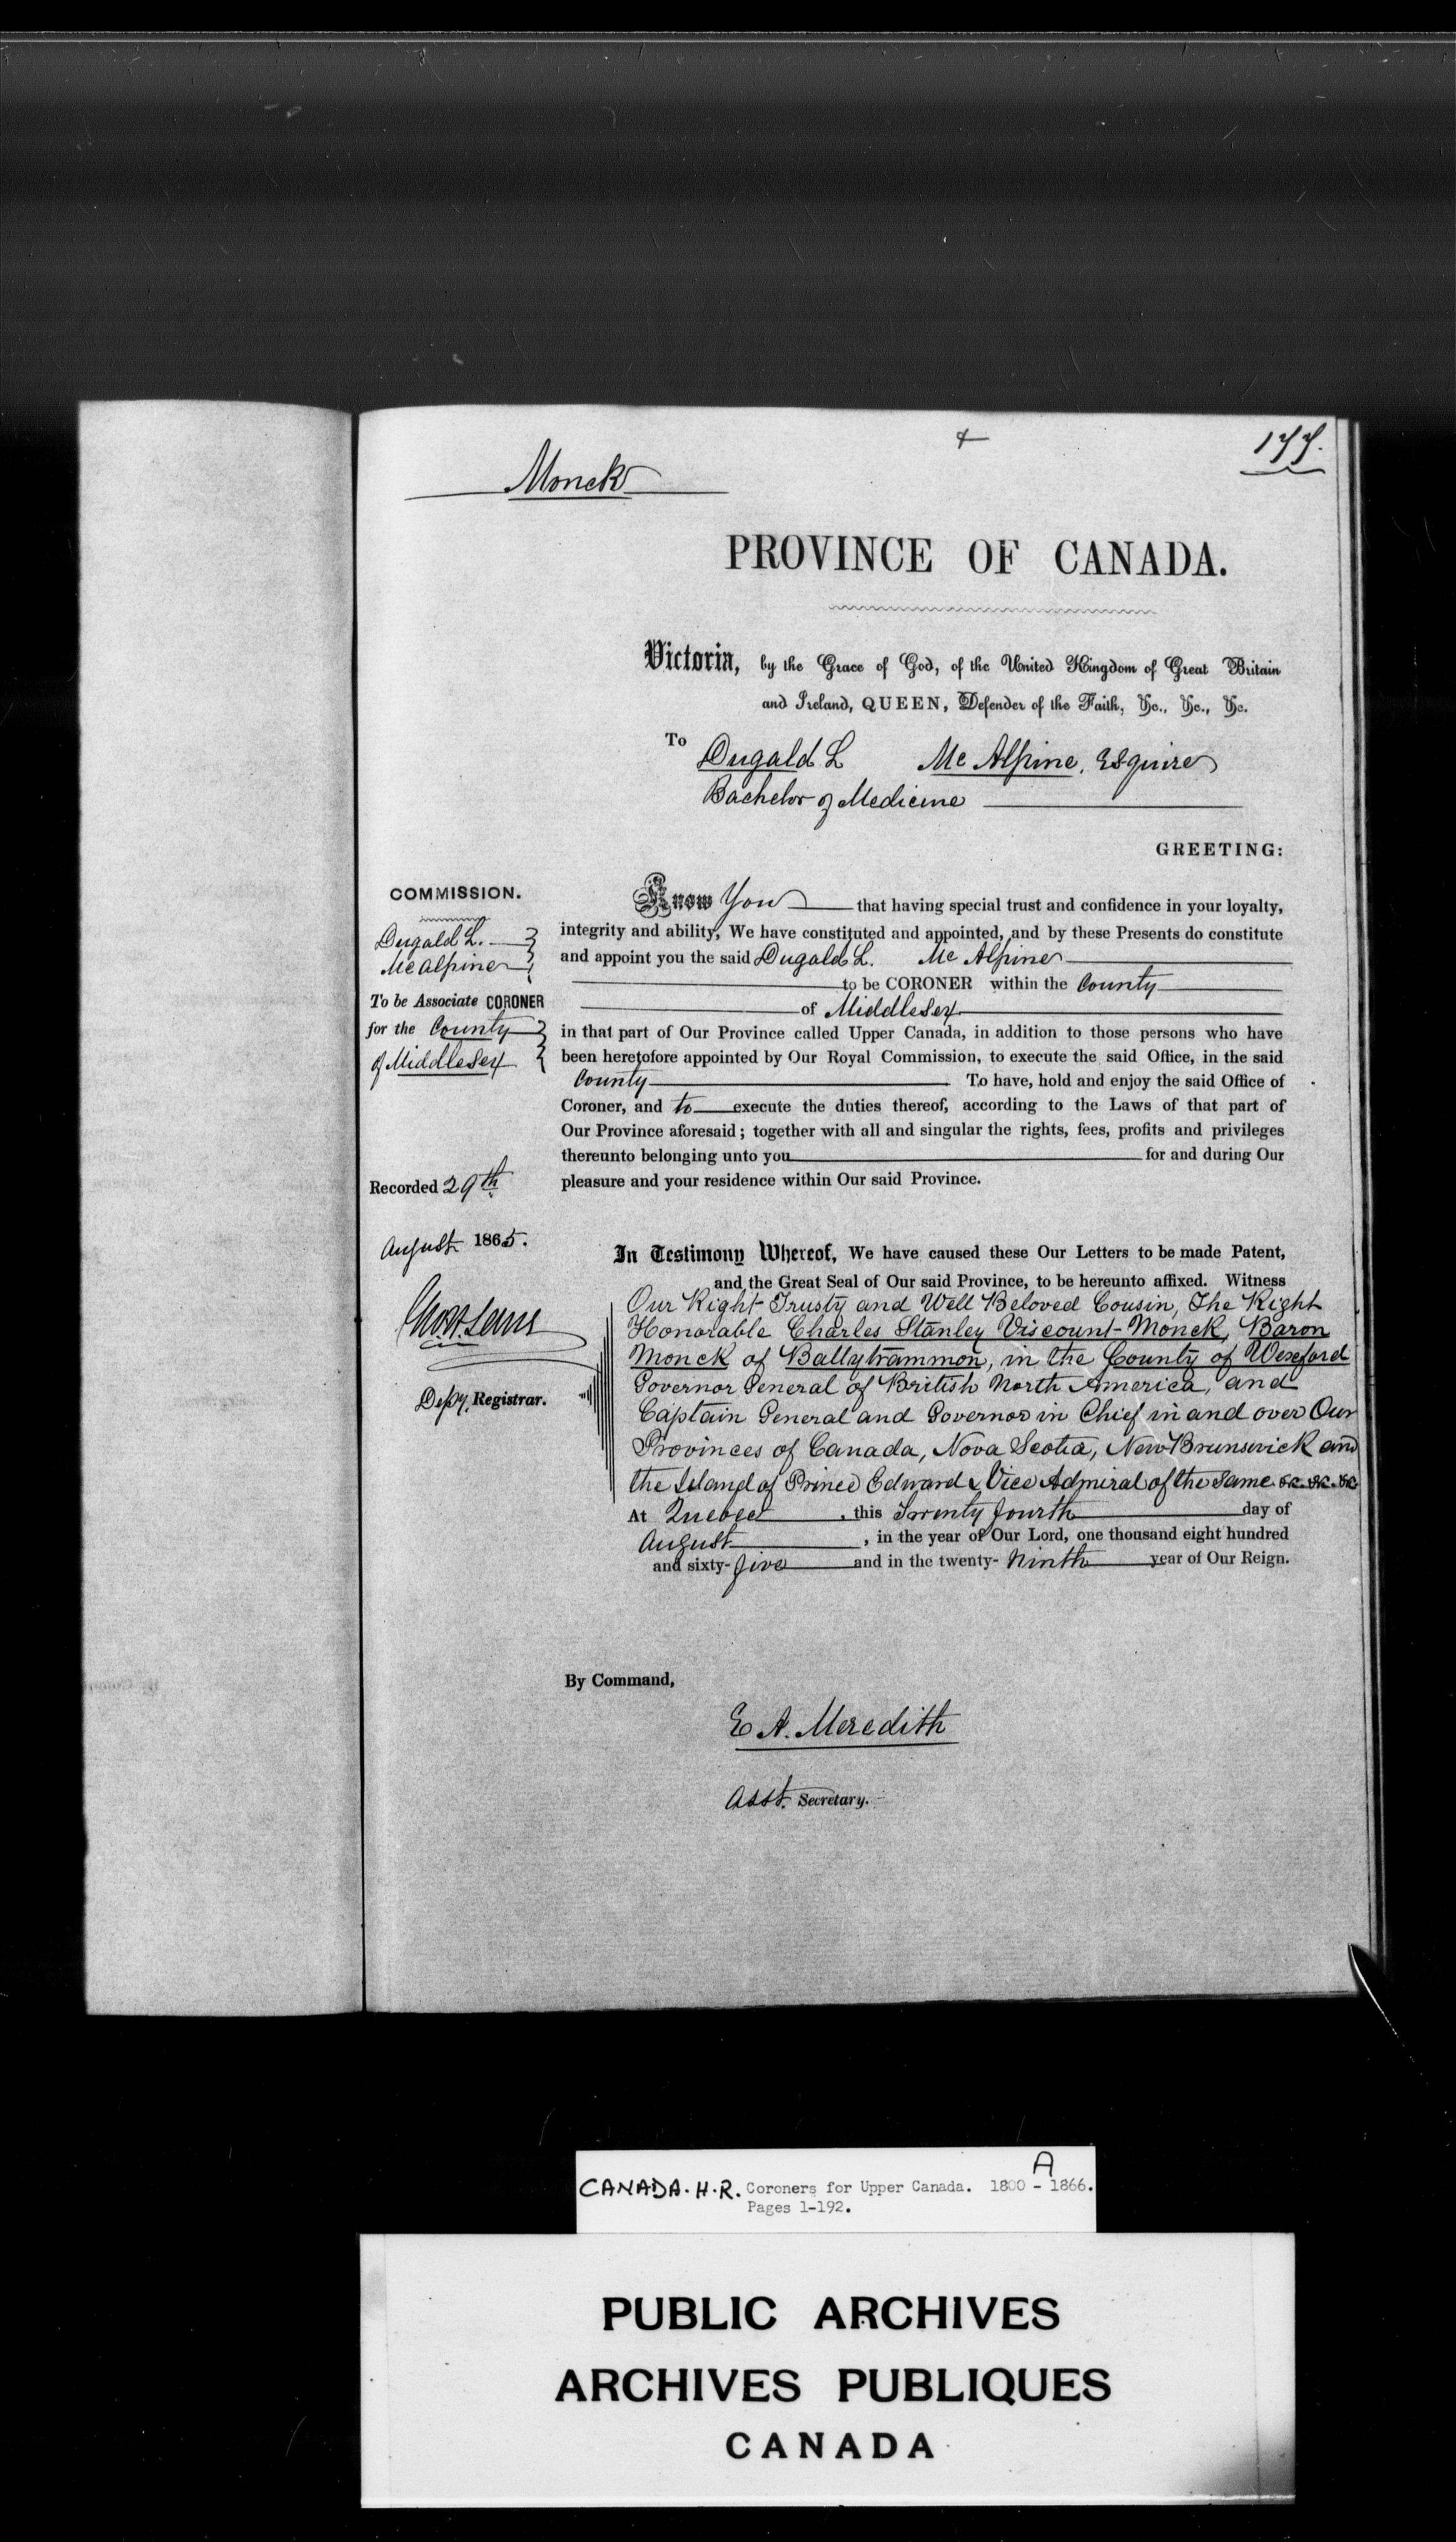 177.
Monck
PROVINCE OF CANADA.
Victoria, by the Grace of God, of the United Kingdom of Great Britain
and Ireland, QUEEN, Defender of the Faith, &c., &c., &c.
To Dugald L McAlpine, Esquire
Bachelor of Medicine
GREETING:
COMMISSION.
Dugald L.
McAlpine
To be Associate CORONER
for the County
of Middlesex
Recorded 29th
August 1865.
Depy. Registrar.
Know You that having special trust and confidence in your loyalty,
integrity and ability, We have constituted and appointed, and by these Presents do constitute
and appoint you the said Dugald L. McAlpine
to be CORONER within the County
of Middlesex
in that part of Our Province called Upper Canada, in addition to those persons who have
been heretofore appointed by Our Royal Commission, to execute the said Office, in the said
County To have, hold and enjoy the said Office of
Coroner, and to execute the duties thereof, according to the Laws of that part of
Our Province aforesaid; together with all and singular the rights, fees, profits and privileges
thereunto belonging unto you for and during Our
pleasure and your residence within Our said Province.
In Testimony Whereof, We have caused these Our Letters to be made Patent,
and the Great Seal of Our said Province, to be hereunto affixed. Witness
Our Right Trusty and Well Beloved Cousin, The Right
Honorable Charles Stanley Viscount Monck, Baron
Monck of Ballytrammon, in the County of Wexford
Governor General of British North America, and
Captain General and Governor in Chief in and over Our
Provinces of Canada, Nova Scotia, New Brunswick and
the Island of Prince Edward & Vice Admiral of the same &c. &c. &c
At Quebec, this Twenty fourth day of
August, in the year of Our Lord, one thousand eight hundred
and sixty-five and in the twenty-ninth year of Our Reign.
By Command,
E A. Meredith
Asst. Secretary.
A
CANADA. H.R. Coroners for Upper Canada. 1800 - 1866.
Pages 1-192.
PUBLIC ARCHIVES
ARCHIVES PUBLIQUES
CANADA